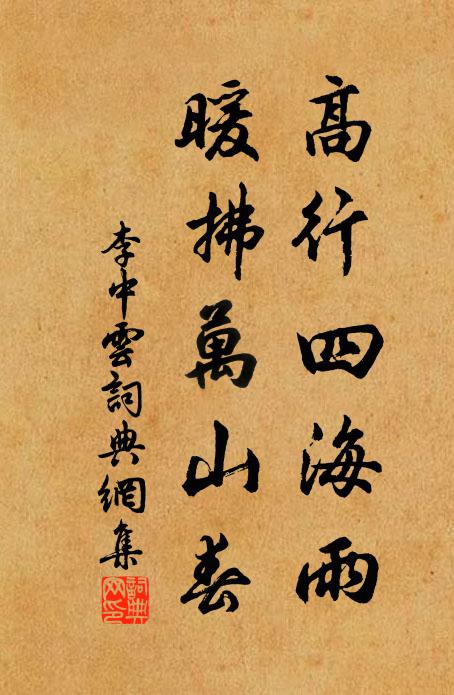 高行四海雨
暖拂萬山春
李中雲詞典網集
詞典網印